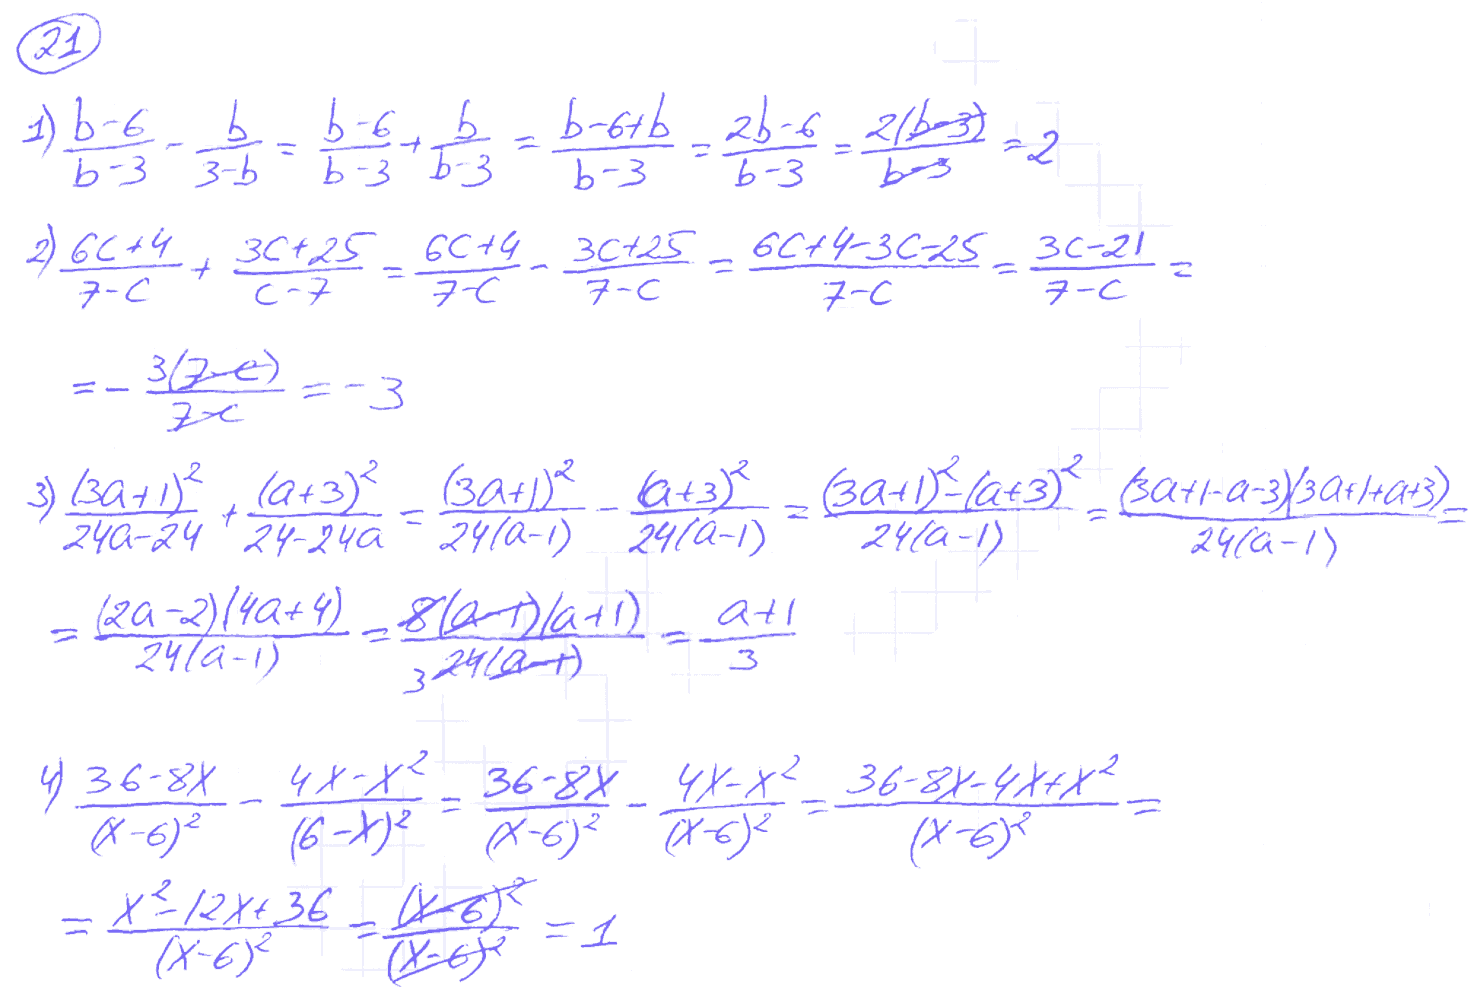 21
1) \frac{b-6}{b-3} - \frac{b}{3-b} = \frac{b-6}{b-3} + \frac{b}{b-3} = \frac{b-6+b}{b-3} = \frac{2b-6}{b-3} = \frac{2(b-3)}{b-3} = 2
2) \frac{6c+4}{7-c} + \frac{3c+25}{c-7} = \frac{6c+4}{7-c} - \frac{3c+25}{7-c} = \frac{6c+4-3c-25}{7-c} = \frac{3c-21}{7-c} =
= - \frac{3(7-c)}{7-c} = -3
3) \frac{(3a+1)^2}{24a-24} + \frac{(a+3)^2}{24-24a} = \frac{(3a+1)^2}{24(a-1)} - \frac{(a+3)^2}{24(a-1)} = \frac{(3a+1)^2-(a+3)^2}{24(a-1)} = \frac{(3a+1-a-3)(3a+1+a+3)}{24(a-1)} =
= \frac{(2a-2)(4a+4)}{24(a-1)} = \frac{8(a-1)(a+1)}{3 24(a-1)} = \frac{a+1}{3}
4) \frac{36-8x}{(x-6)^2} - \frac{4x-x^2}{(6-x)^2} = \frac{36-8x}{(x-6)^2} - \frac{4x-x^2}{(x-6)^2} = \frac{36-8x-4x+x^2}{(x-6)^2} =
= \frac{x^2-12x+36}{(x-6)^2} = \frac{(x-6)^2}{(x-6)^2} = 1